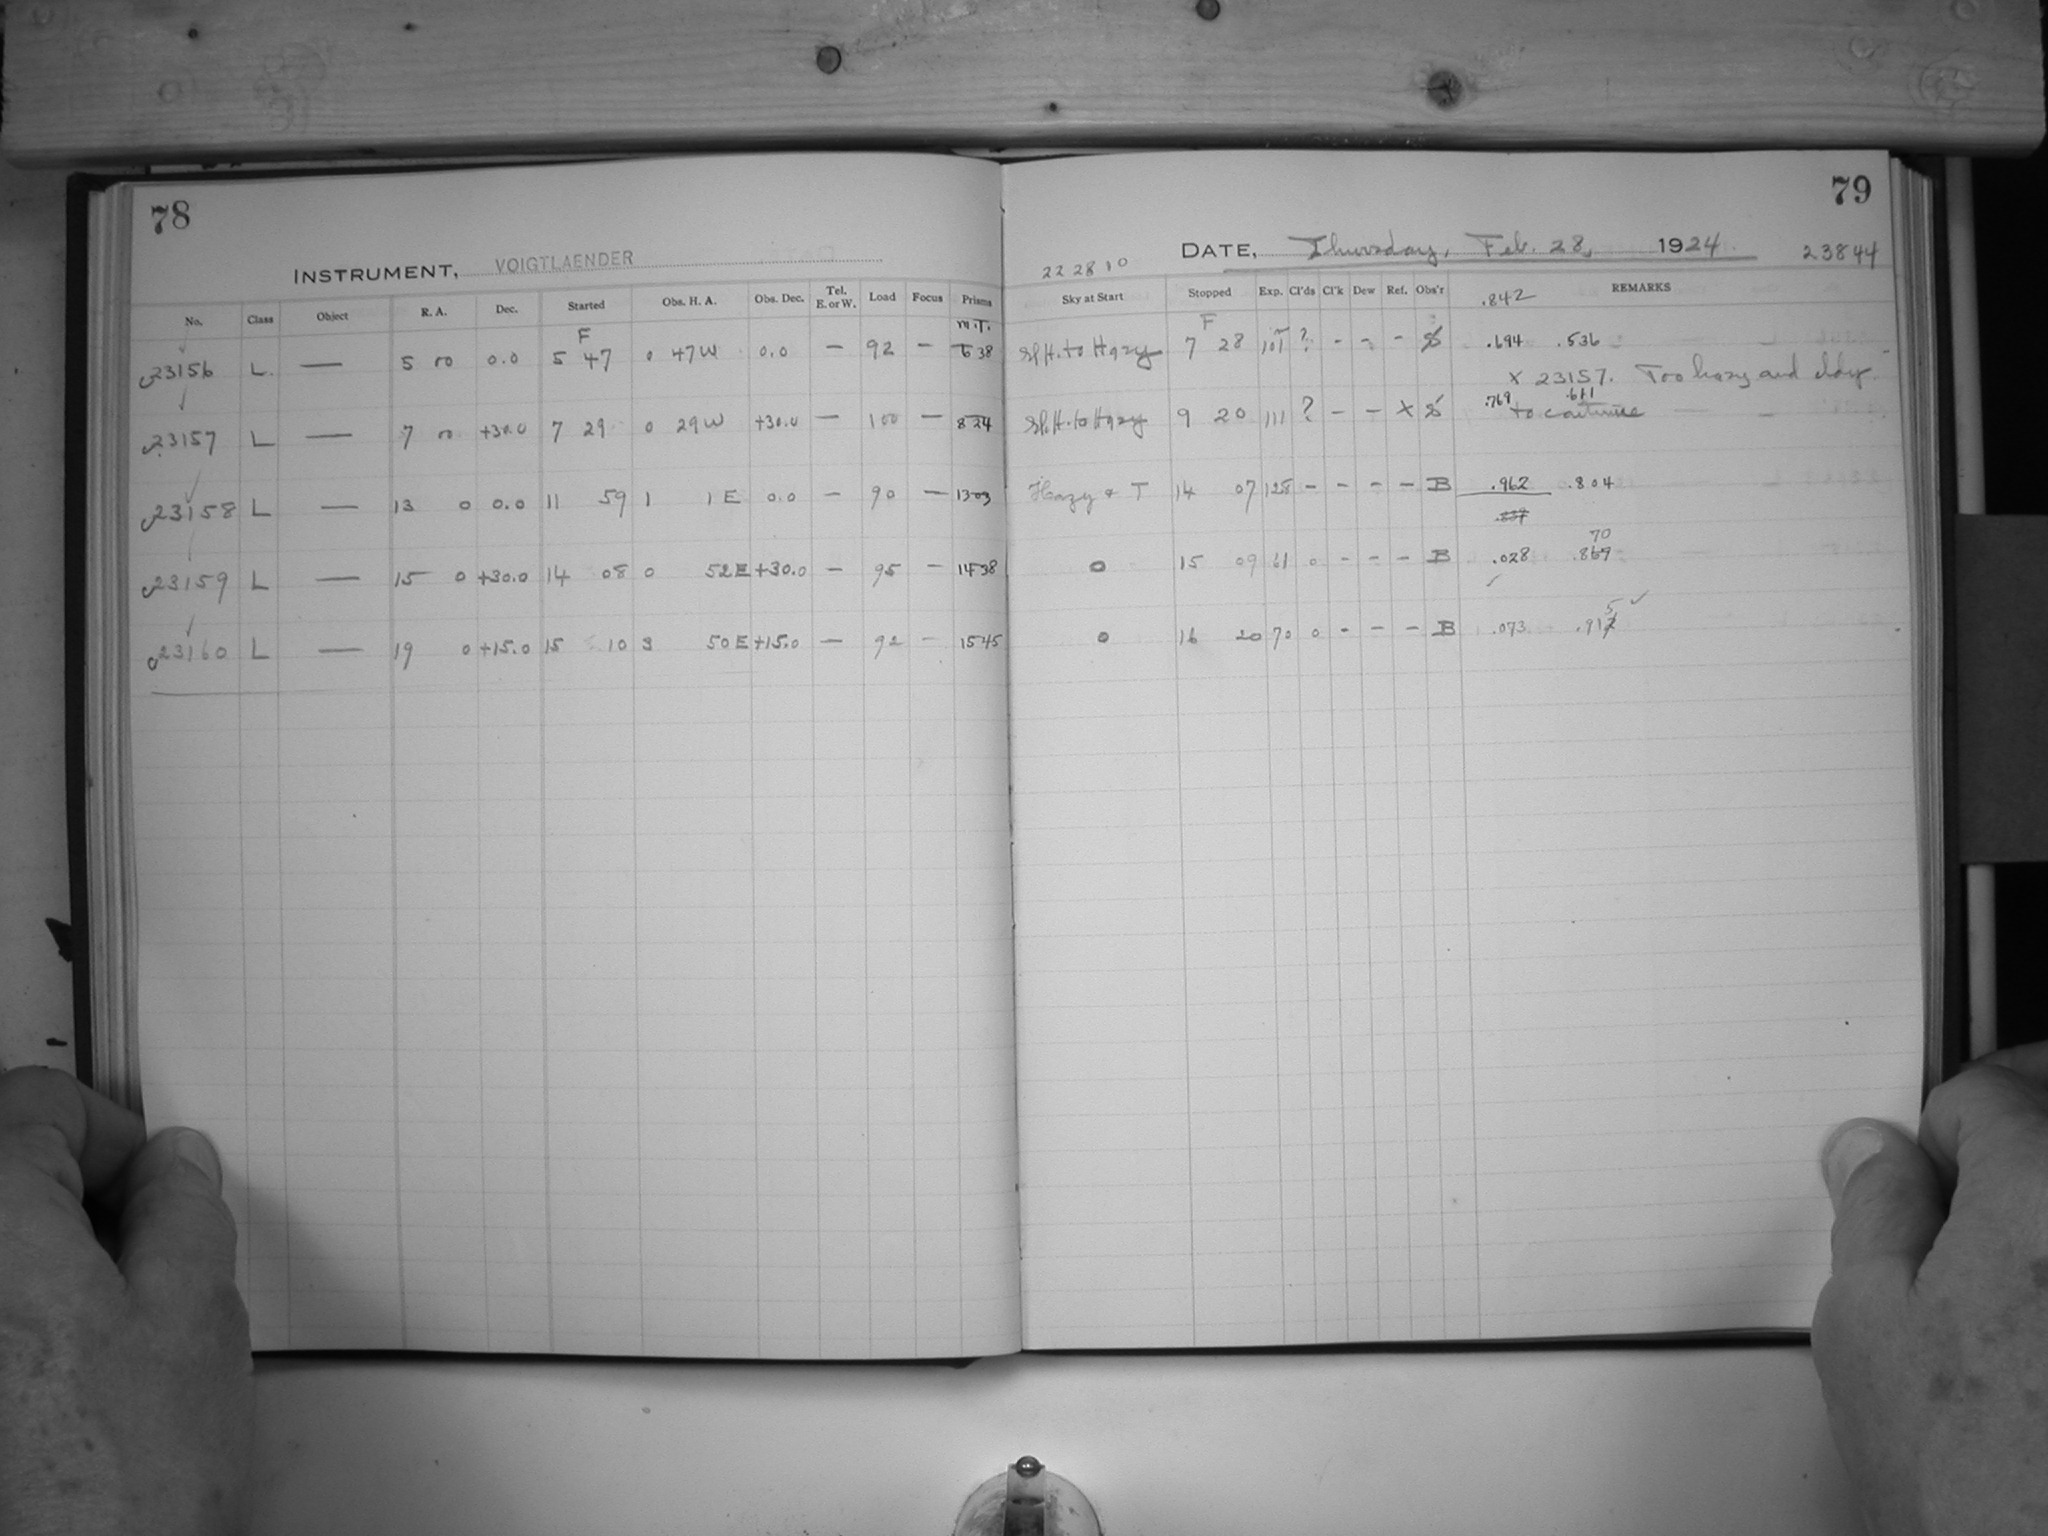 78
INSTRUMENT, VOIGTLAENDER
No. Class Object R. A. Dec. Started Obs. H. A. Obs. Dec. Tel. E. or W. Load Focus Prisms
F M.T.
23156 L — 5 00 0.0 5 47 0 47W 0.0 — 92 — 638
23157 L — 7 00 +30.0 7 29 0 29W +30.0 — 100 — 824
23158 L — 13 0 0.0 11 59 1 1E 0.0 — 90 — 1303
23159 L — 15 0 +30.0 14 08 0 52E +30.0 — 95 — 1438
23160 L — 19 0 +15.0 15 10 3 50E +15.0 — 92 — 1545
79
DATE, Thursday, Feb. 28, 1924.
22 28 10 23844
Sky at Start Stopped Exp. Cl'ds Cl'k Dew Ref. Obs'r REMARKS
.842
F
Sl.H. to Hazy 7 28 101 ? - - - S .694 .536
X 23157. Too hazy and cldy.
.769 .611
Sl.H. to Hazy 9 20 111 ? - - X S to continue
Hazy & T 14 07 128 - - - - B .962 .804
.839
70
0 15 09 61 0 - - - B .028 .869
5
0 16 20 70 0 - - - B .073 .917